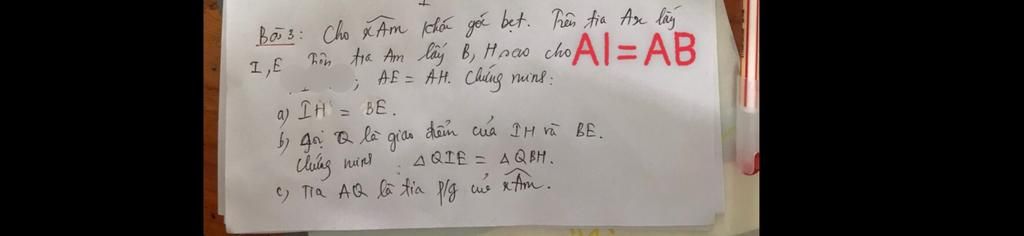 Bài 3: Cho xAm khác góc bẹt. Trên tia Ax lấy
I, E Trên tia Am lấy B, H sao cho AI=AB
; AE = AH. Chứng minh:
a) IH = BE.
b) gọi Q là giao điểm của IH và BE.
Chứng minh: △QIE = △QBH.
c) Tia AQ là tia p/g của xAm.